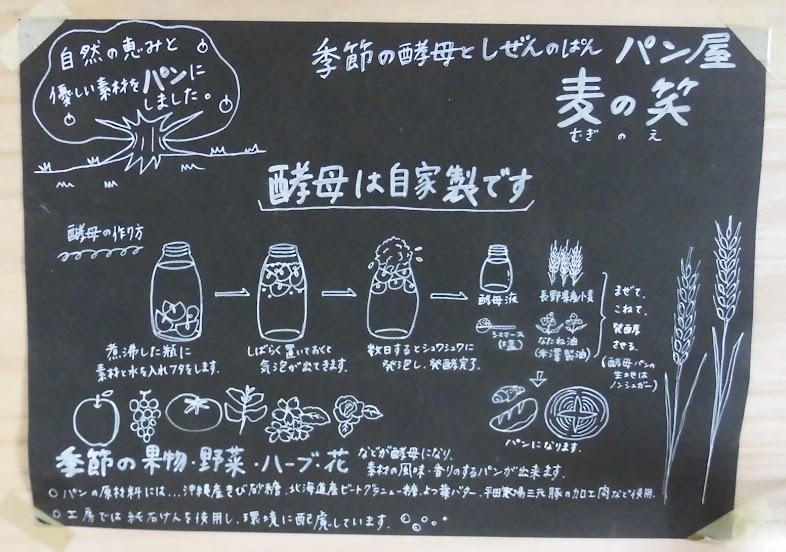 自然の恵みと
優しい素材をパンに
しました。
季節の酵母としぜんのぱん パン屋
麦の笑
むぎのえ
酵母は自家製です
酵母の作り方
煮沸した瓶に
素材と水を入れフタをします。
しばらく置いておくと
気泡が出てきます。
数日するとシュワシュワに
発泡し、発酵完了。
酵母液
長野県産小麦
シママース
(塩)
なたね油
(米澤製油)
まぜて、
こねて、
発酵
させる。
(酵母パンの
生地は
ノンシュガー)
パンになります。
季節の果物・野菜・ハーブ・花 などが酵母になり、
素材の風味・香りのするパンが出来ます。
○パンの原材料には…沖縄産きび砂糖、北海道産ビートグラニュー糖、よつ葉バター、平田牧場三元豚の加工肉など使用。
○工房では純石けんを使用し、環境に配慮しています。